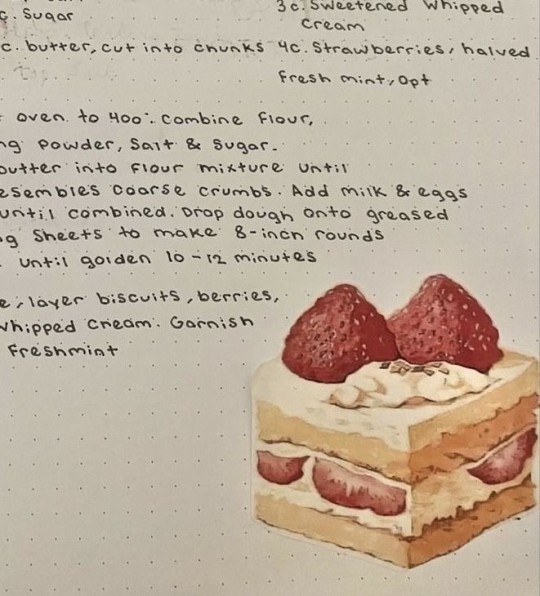 c. Sugar
c. butter, cut into chunks
3 c. Sweetened Whipped
Cream
4c. Strawberries, halved
Fresh mint, opt
oven to 400°. Combine flour,
ng powder, Salt & Sugar.
butter into flour mixture until
esembles coarse crumbs. Add milk & eggs
until combined. Drop dough onto greased
g Sheets to make 8-inch rounds
until golden 10-12 minutes
e, layer biscuits, berries,
whipped cream. Garnish
Freshmint